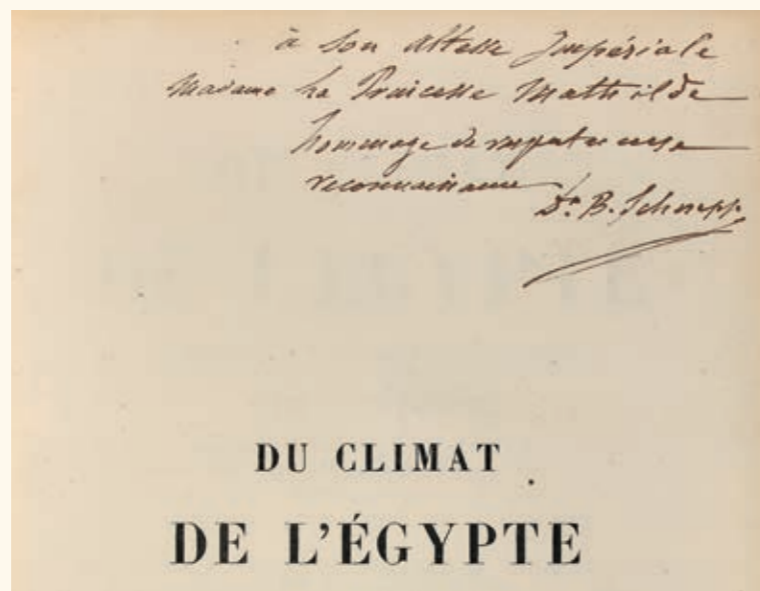 à Son Altesse Impériale
Madame La Princesse Mathilde
hommage de respectueuse
reconnaissance
Dr. B. Schnepp
DU CLIMAT
DE L'ÉGYPTE